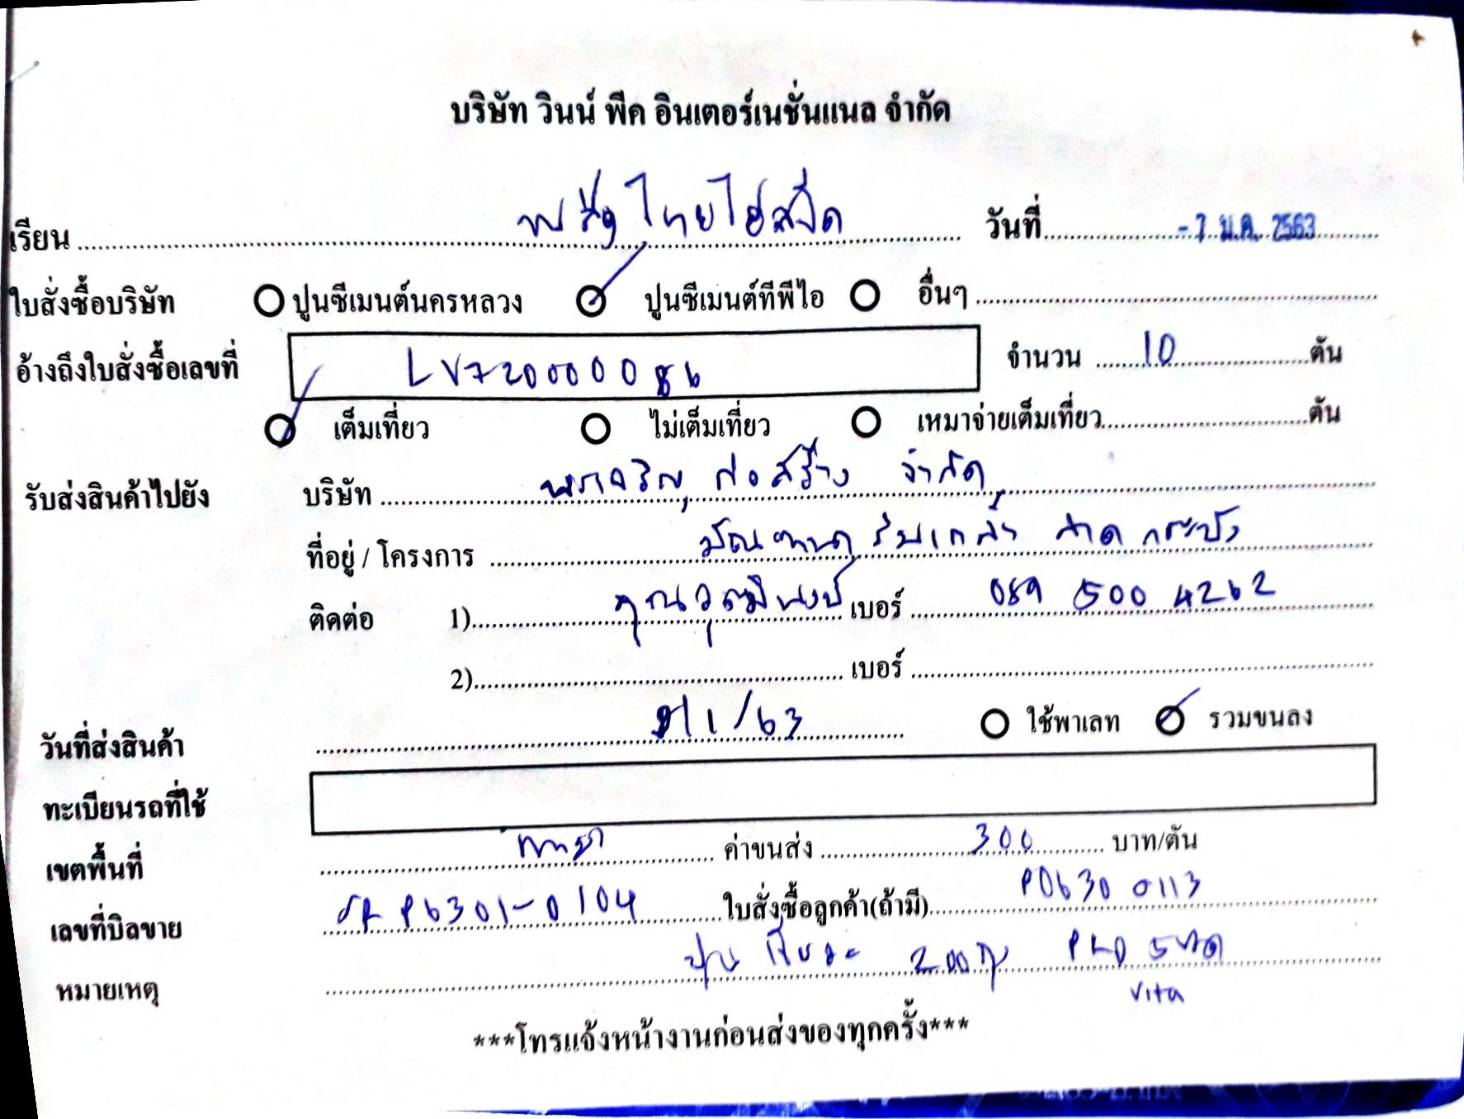 บริษัท วินน์ พีค อินเตอร์เนชั่นแนล จำกัด
เรียน วันที่ - 7 ม.ค. 2563
ใบสั่งซื้อบริษัท ปูนซีเมนต์นครหลวง ปูนซีเมนต์ทีพีไอ อื่นๆ
อ้างถึงใบสั่งซื้อเลขที่ LV720000086 จำนวน 10 ตัน
เต็มเที่ยว ไม่เต็มเที่ยว เหมาจ่ายเต็มเที่ยว ตัน
รับส่งสินค้าไปยัง บริษัท ก่อสร้าง จำกัด
ที่อยู่ / โครงการ
ติดต่อ 1) คุณวุฒิพงษ์ เบอร์ 089 500 4262
2) เบอร์
วันที่ส่งสินค้า 8/1/63 ใช้พาเลท รวมขนลง
ทะเบียนรถที่ใช้
เขตพื้นที่ ค่าขนส่ง 300 บาท/ตัน
เลขที่บิลขาย P6301-0104 ใบสั่งซื้อลูกค้า(ถ้ามี) PO630 0113
หมายเหตุ ปูน 200 ถุง
Vita
***โทรแจ้งหน้างานก่อนส่งของทุกครั้ง***